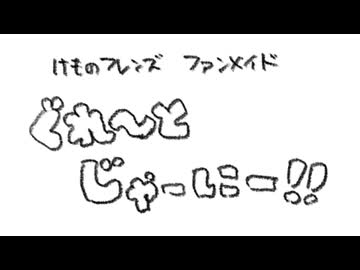 けものフレンズ ファンメイド
ぐれ〜と
じゃーにー!!